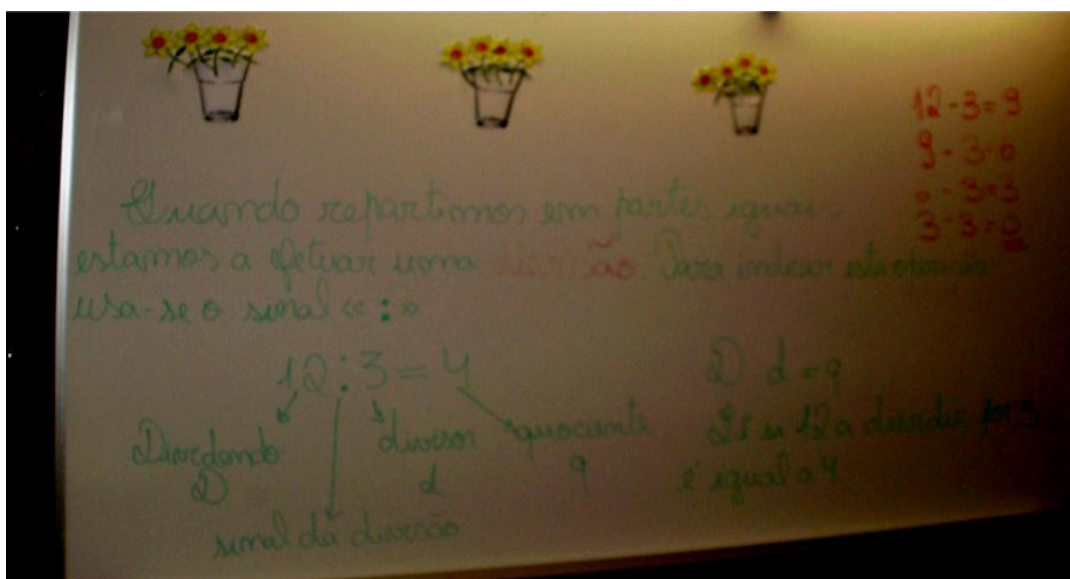 12 - 3 = 9
9 - 3 = 6
6 - 3 = 3
3 - 3 = 0
Quando repartimos em partes iguais
estamos a efetuar uma divisão Para indicar esta operação
usa-se o sinal « : »
12 : 3 = 4
Dividendo
D
divisor
d
quociente
q
sinal da divisão
D d = q
Lê-se 12 a dividir por 3
é igual a 4